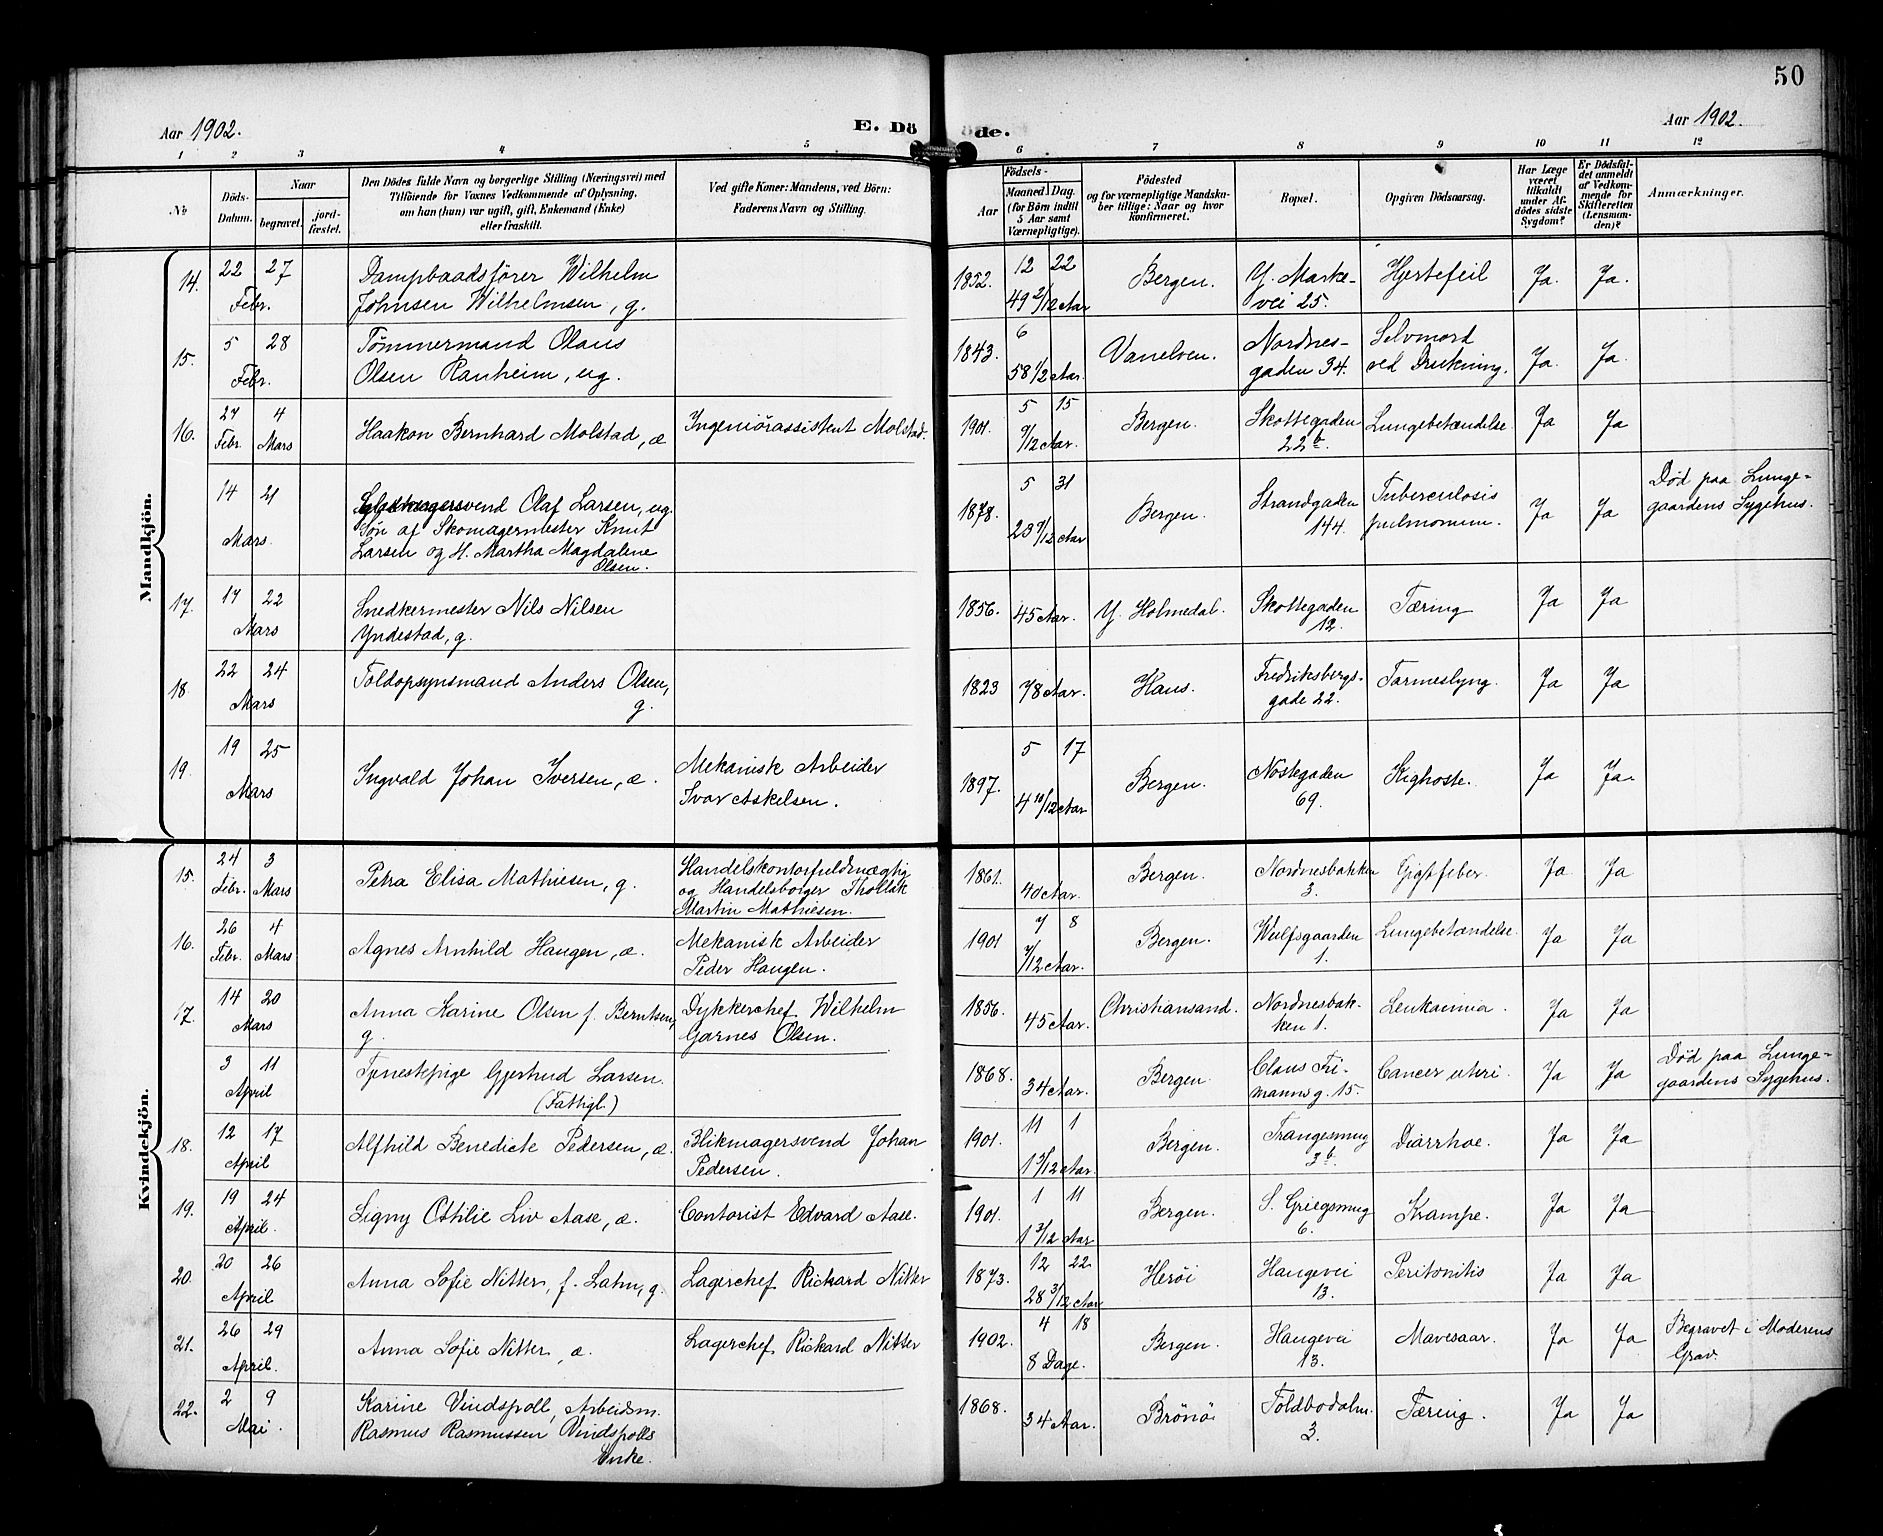 50
Aar 1902.
E. Döde.
Aar 1902.
1 2 3 4 5 6 7 8 9 10 11 12
No
Döds-
Datum.
Naar
begravet.
jord-
fæstet.
Den Dödes fulde Navn og borgerlige Stilling (Næringsvei) med
Tilföiende för Voxnes Vedkommende af Oplysning,
om han (hun) var ugift, gift, Enkemand (Enke)
eller fraskilt.
Ved gifte Koner: Mandens, ved Börn:
Faderens Navn og Stilling.
Födsels-
Aar
Maaned. Dag.
(for Börn indtil
5 Aar samt
Værnepligtige).
Födested
og for værnepligtige Mandska-
ber tillige: Naar og hvor
konfirmeret.
Bopæl.
Opgiven Dödsaarsag.
Har Læge
været
tilkaldt
under Af-
dödes sidste
Sygdom?
Er Dödsfal-
det anmeldt
af Vedkom-
mende for
Skifteretten
(Lensman-
den)?
Anmærkninger.
Mandkjön.
14. 22 27 Febr. Dampbaadsfører Wilhelm
Johnsen Wilhelmsen, g.
1852. 12 22 49 2/12 Aar Bergen. Y. Marke-
vei 25. Hjertefeil Ja. Ja.
15. 5 28 Febr. Tømmermand Olaus
Olsen Ranheim, ug.
1843. 6 58 1/2 Aar. Vanelven. Nordnes-
gaden 34. Selvmord
ved Drukning. Ja. Ja.
16. 27 Febr. 4 Mars Haakon Bernhard Molstad, æ Ingeniörassistent Molstad.
1901. 5 15 9/12 Aar. Bergen. Skottegaden
22b. Lungebetændelse. Ja Ja
14 21 Mars. svend Olaf Larsen, ug.
Søn af Skomagermester Knut
Larsen og H. Martha Magdalene
Olsen.
1878. 5 31 23 7/12 Aar Bergen. Strandgaden
144. Tuberculosis
pulmonum. Ja Ja Død paa Lunge-
gaardens Sygehus.
17. 17 22 Mars Snedkermester Nils Nilsen
Yndestad, g.
1856. 45 Aar. Y. Holmedal. Skottegaden
12. Tæring Ja Ja
18 22 24 Mars Toldopsynsmand Anders Olsen,
g.
1823 78 Aar. Haus. Fredriksbergs-
gade 22. Tarmeslyng. Ja Ja
19. 19 25 Mars Ingvald Johan Iversen, æ. Mekanisk Arbeider
Ivar Askelsen.
1897. 5 17 4 10/12 Aar Bergen. Nøstegaden
69. Kighoste. Ja Ja.
Kvindekjön.
15. 24 Febr. 3 Mars Petra Elisa Mathiesen, g. Handelskontorfuldmægtig
og Handelsborger Thollak
Martin Mathiesen.
1861. 40 Aar. Bergen. Nordnesbakken
3. Gigtfeber. Ja Ja
16. 26 Febr. 4 Mars Agnes Arnhild Haugen, æ. Mekanisk Arbeider
Peder Haugen.
1901 7 8 7/12 Aar. Bergen. Wulfsgaarden
1. Lungebetændelse. Ja Ja
17. 14 20 Mars Anna Karine Olsen f. Berntsen,
g. Dykkerchef Wilhelm
Garnes Olsen.
1856. 45 Aar. Christiansand. Nordnesbak-
ken 1. Leukaimia. Ja Ja
3 11 April Tjenestepige Gjertrud Larsen.
(Fattigl.)
1868. 34 Aar. Bergen. Claus Fri-
manns g. 15. Cancer uteri. Ja Ja Død paa Lunge-
gaardens Sygehus.
18. 12 17 April Alfhild Benedicte Pedersen, æ. Blikmagersvend Johan
Pedersen.
1901. 11 1 1 3/12 Aar. Bergen. Trangesmug
3b. Diarrhoe. Ja Ja
19. 19 24 April. Signy Othilie Liv Aase, æ. Contorist Edvard Aase.
1901. 1 11 1 3/12 Aar Bergen. S. Griegsmug
6. Krampe. Ja Ja
20. 20 26 April Anna Sofie Nitter, f. Lahn, g. Lagerchef Rickard Nitter
1873. 12 22 28 3/12 Aar Herøi Haugevei
13. Peritonitis Ja Ja
21. 26 29 April. Anna Sofie Nitter, æ. Lagerchef Rickard Nitter
1902. 4 18 8 Dage. Bergen. Haugevei
13. Mavesaar. Ja Ja Begravet i Moderens
Grav.
22. 2 9 Mai. Karine Vindspoll, Arbeidsm.
Rasmus Rasmussen Vindspolls
Enke.
1868. 34 Aar. Brønøi Toldbodalm.
3. Tæring. Ja Ja